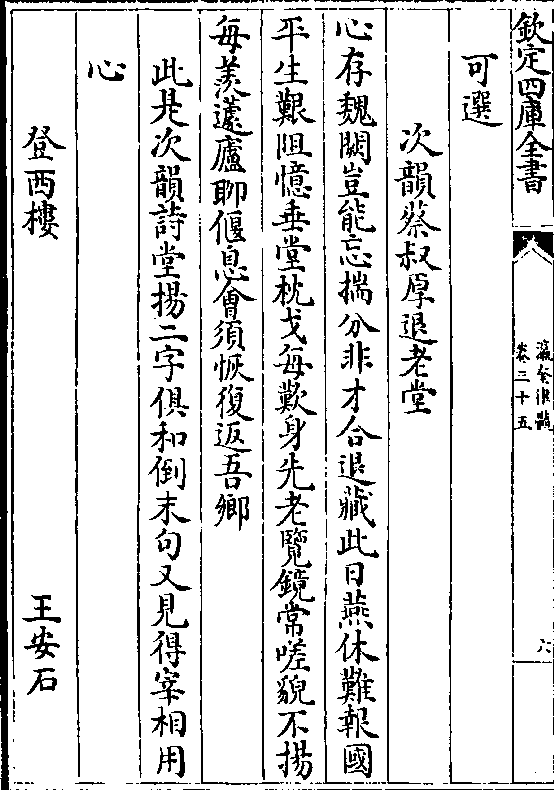 欽定四庫全書
瀛奎律髓
卷三十五
六
可選
次韻蔡叔厚退老堂
心存魏闕豈能忘揣分非才合退藏此日燕休難報國
平生艱阻憶垂堂枕戈每歎身先老覽鏡常嗟貌不揚
每羨蘧廬聊偃息會須恢復返吾鄉
此是次韻詩堂揚二字俱和倒末句又見得宰相用
心
登西樓 王安石